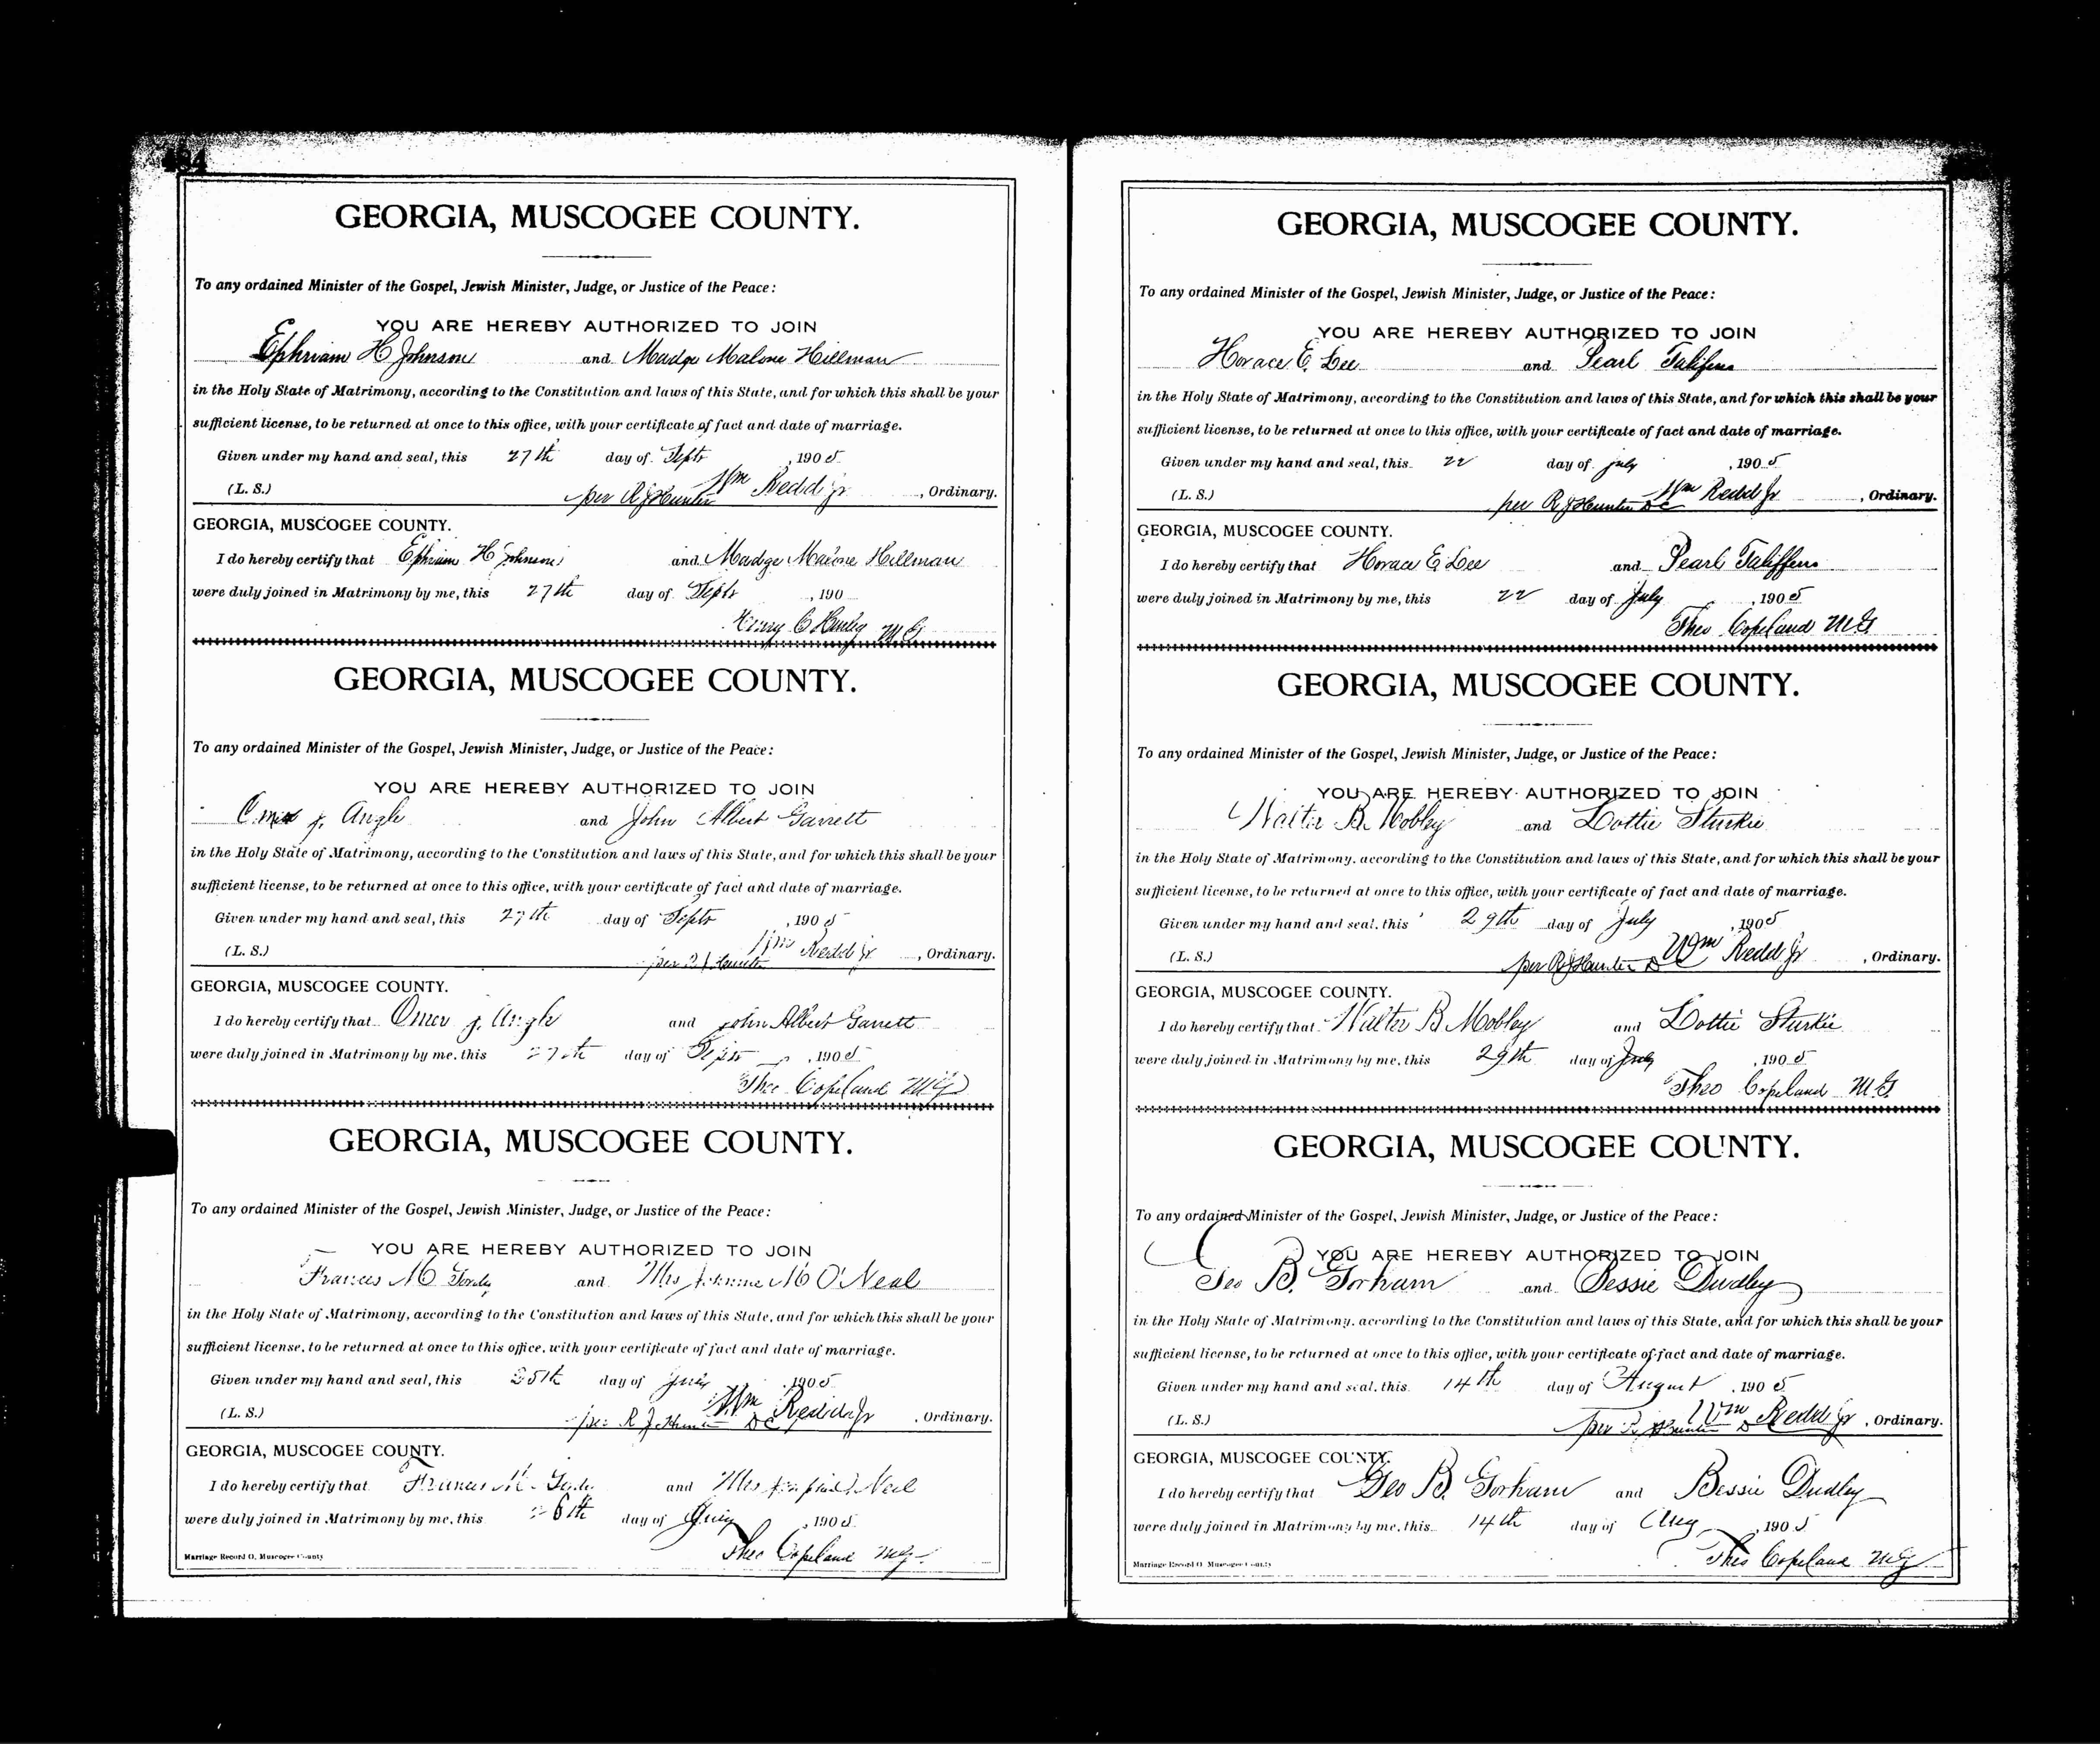 GEORGIA, MUSCOGEE COUNTY.
To any ordained Minister of the Gospel, Jewish Minister, Judge, or Justice of the Peace:
YOU ARE HEREBY AUTHORIZED TO JOIN
Ephriam H Johnson and Madge Malone Hillman
in the Holy State of Matrimony, according to the Constitution and laws of this State, and for which this shall be your
sufficient license, to be returned at once to this office, with your certificate of fact and date of marriage.
Given under my hand and seal, this 27th day of Septr, 1905
(L. S.) per R J Hunter Wm Redd Jr, Ordinary.
GEORGIA, MUSCOGEE COUNTY.
I do hereby certify that Ephriam H Johnson and Madge Malone Hillman
were duly joined in Matrimony by me, this 27th day of Septr, 190
Henry C M G
GEORGIA, MUSCOGEE COUNTY.
To any ordained Minister of the Gospel, Jewish Minister, Judge, or Justice of the Peace:
YOU ARE HEREBY AUTHORIZED TO JOIN
Omer J. Angle and John Albert Garrett
in the Holy State of Matrimony, according to the Constitution and laws of this State, and for which this shall be your
sufficient license, to be returned at once to this office, with your certificate of fact and date of marriage.
Given under my hand and seal, this 27th day of Septr, 1905
(L. S.) per R J Hunter Wm Redd Jr, Ordinary.
GEORGIA, MUSCOGEE COUNTY.
I do hereby certify that Omer J. Angle and John Albert Garrett
were duly joined in Matrimony by me, this 27th day of Septr, 1905
Theo Copeland M G
GEORGIA, MUSCOGEE COUNTY.
To any ordained Minister of the Gospel, Jewish Minister, Judge, or Justice of the Peace:
YOU ARE HEREBY AUTHORIZED TO JOIN
Frances M and Mrs O'Neal
in the Holy State of Matrimony, according to the Constitution and laws of this State, and for which this shall be your
sufficient license, to be returned at once to this office, with your certificate of fact and date of marriage.
Given under my hand and seal, this 25th day of July, 1905
(L. S.) per R J Hunter D C, Wm Redd Jr, Ordinary.
GEORGIA, MUSCOGEE COUNTY.
I do hereby certify that Frances M. and Mrs Neal
were duly joined in Matrimony by me, this day of July, 1905
Theo Copeland M G
Marriage Record O, Muscogee County
GEORGIA, MUSCOGEE COUNTY.
To any ordained Minister of the Gospel, Jewish Minister, Judge, or Justice of the Peace:
YOU ARE HEREBY AUTHORIZED TO JOIN
Horace E. Lee and Pearl
in the Holy State of Matrimony, according to the Constitution and laws of this State, and for which this shall be your
sufficient license, to be returned at once to this office, with your certificate of fact and date of marriage.
Given under my hand and seal, this 22 day of July, 1905
(L. S.) per R J Hunter D C Wm Redd Jr, Ordinary.
GEORGIA, MUSCOGEE COUNTY.
I do hereby certify that Horace E Lee and Pearl
were duly joined in Matrimony by me, this 22 day of July, 1905
Theo Copeland M G
GEORGIA, MUSCOGEE COUNTY.
To any ordained Minister of the Gospel, Jewish Minister, Judge, or Justice of the Peace:
YOU ARE HEREBY AUTHORIZED TO JOIN
Walter B. Mobley and Lottie Sturkie
in the Holy State of Matrimony, according to the Constitution and laws of this State, and for which this shall be your
sufficient license, to be returned at once to this office, with your certificate of fact and date of marriage.
Given under my hand and seal, this 29th day of July, 1905
(L. S.) per R J Hunter D C Wm Redd Jr, Ordinary.
GEORGIA, MUSCOGEE COUNTY.
I do hereby certify that Walter B Mobley and Lottie Sturkie
were duly joined in Matrimony by me, this 29th day of July, 1905
Theo Copeland M G
GEORGIA, MUSCOGEE COUNTY.
To any ordained Minister of the Gospel, Jewish Minister, Judge, or Justice of the Peace:
YOU ARE HEREBY AUTHORIZED TO JOIN
Geo B. Gorham and Bessie Dudley
in the Holy State of Matrimony, according to the Constitution and laws of this State, and for which this shall be your
sufficient license, to be returned at once to this office, with your certificate of fact and date of marriage.
Given under my hand and seal, this 14th day of August, 1905
(L. S.) per R J Hunter D Wm Redd Jr, Ordinary.
GEORGIA, MUSCOGEE COUNTY.
I do hereby certify that Geo B. Gorham and Bessie Dudley
were duly joined in Matrimony by me, this 14th day of Aug, 1905
Theo Copeland M G
Marriage Record O, Muscogee County